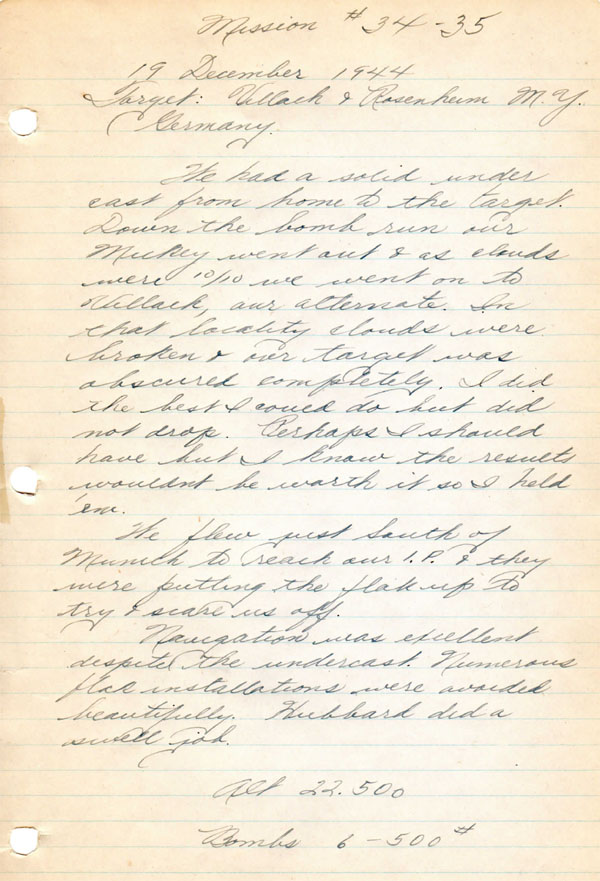 Mission # 34-35
19 December 1944
Target: Villach & Rosenheim M.Y.
Germany.
We had a solid under
cast from home to the target.
Down the bomb run our
Mickey went out & as clouds
were 10/10 we went on to
Villach, our alternate. In
that locality clouds were
broken & our target was
obscured completely. I did
the best I could do but did
not drop. Perhaps I should
have but I know the results
wouldnt be worth it so I held
'em.
We flew just South of
Munich to reach our I.P. & they
were putting the flak up to
try & scare us off.
Navigation was excellent
despite the undercast. Numerous
flak installations were avoided
beautifully. Hubbard did a
swell job.
Alt 22.500
Bombs 6-500#